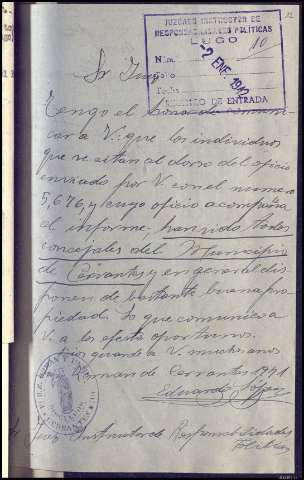 12
JUZGADO INSTRUCTOR DE
RESPONSABILIDADES POLITICAS
LUGO
Núm. 10
Folio
Fecha
-2 ENE. 1942
REGISTRO DE ENTRADA
Sr Juez
Tengo el honor de comuni-
car a V. que los individuos
que se citan al dorso del oficio
enviado por V. con el numero
5,676, y cuyo oficio acompaña
al informe, han sido todos
concejales del Municipio
de Cervantes y en general dis-
ponen de bastante buena pro-
piedad. Lo que comunico a
V. a los efectos oportunos.
Dios guarde a V. muchos anos
San Roman de Cervantes 1941
Eduardo López
Sr Juez Instructor de Responsabilidades
Politicas